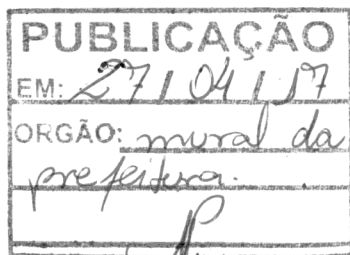 PUBLICAÇÃO
EM: 27/04/17
ORGÃO: mural da
prefeitura.